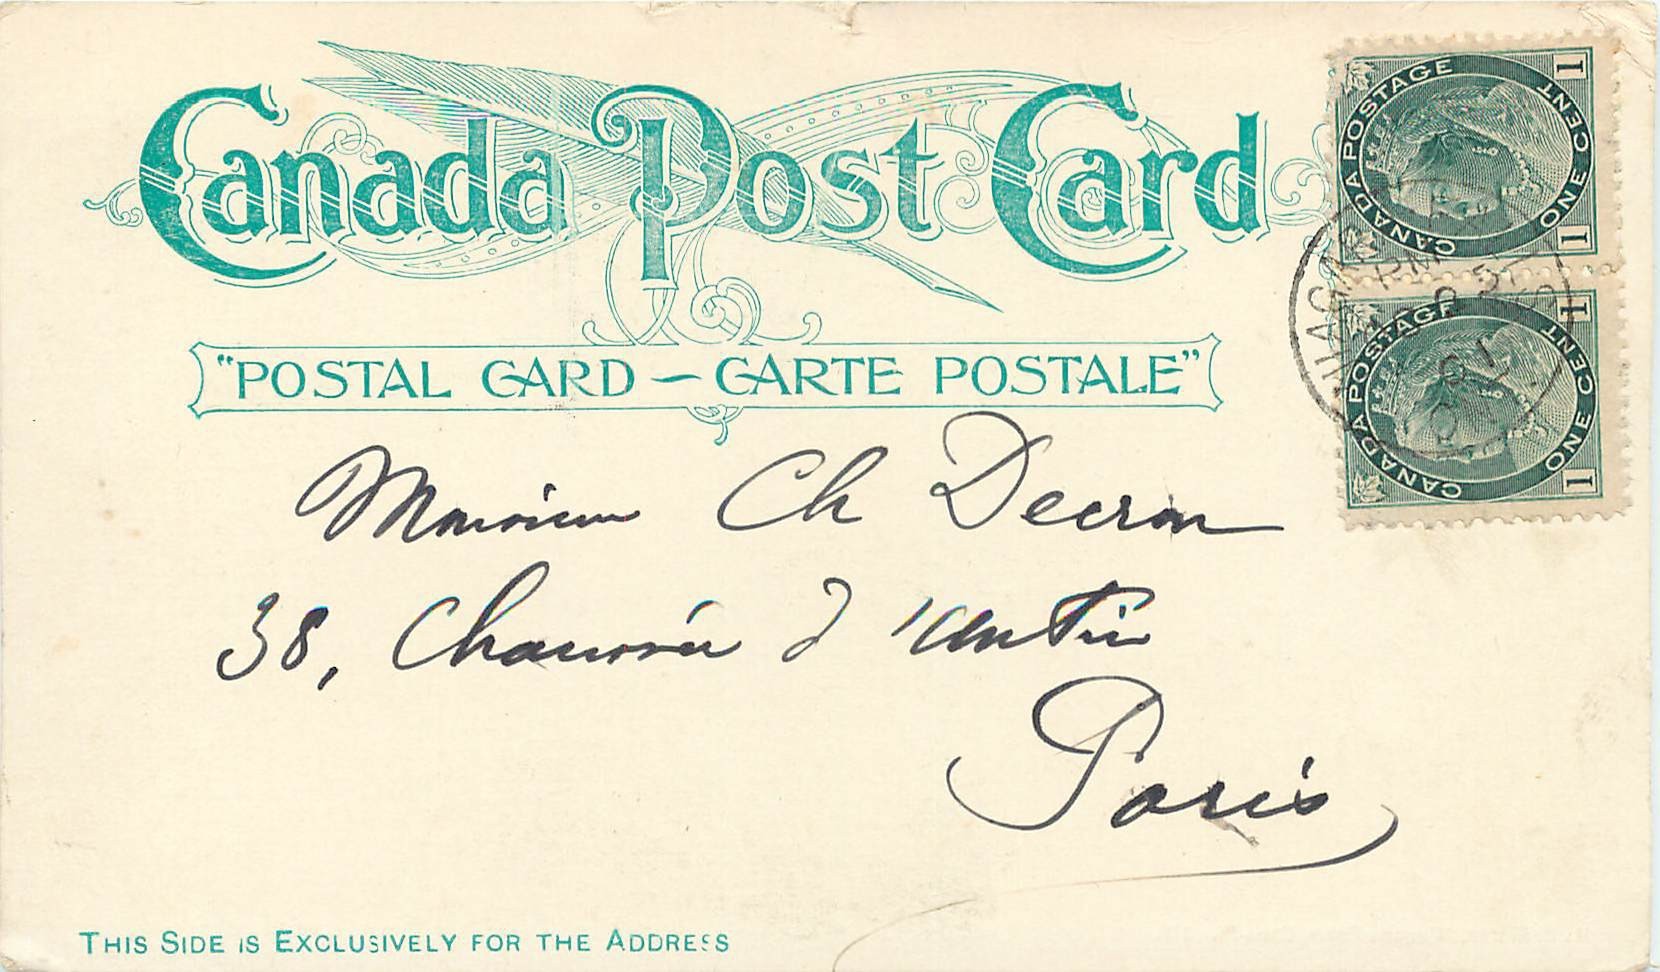 Canada Post Card
"POSTAL CARD – CARTE POSTALE"
CANADA POSTAGE
ONE CENT
1 1
CANADA POSTAGE
ONE CENT
1 1
NIAGARA
PM
01
Monsieur Ch
38, Chaussée d'Antin
Paris
THIS SIDE IS EXCLUSIVELY FOR THE ADDRESS